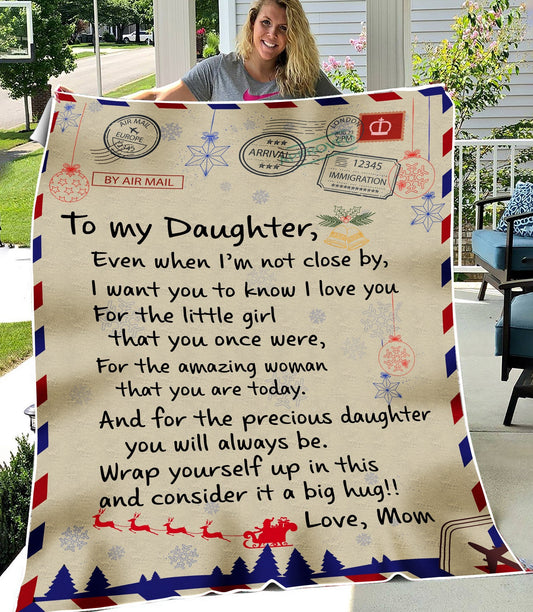 AIR MAIL
EUROPE
ARRIVAL
LONDON
12345
IMMIGRATION
BY AIR MAIL
To my Daughter,
Even when I'm not close by,
I want you to know I love you
For the little girl
that you once were,
For the amazing woman
that you are today.
And for the precious daughter
you will always be.
Wrap yourself up in this
and consider it a big hug!!
Love, Mom